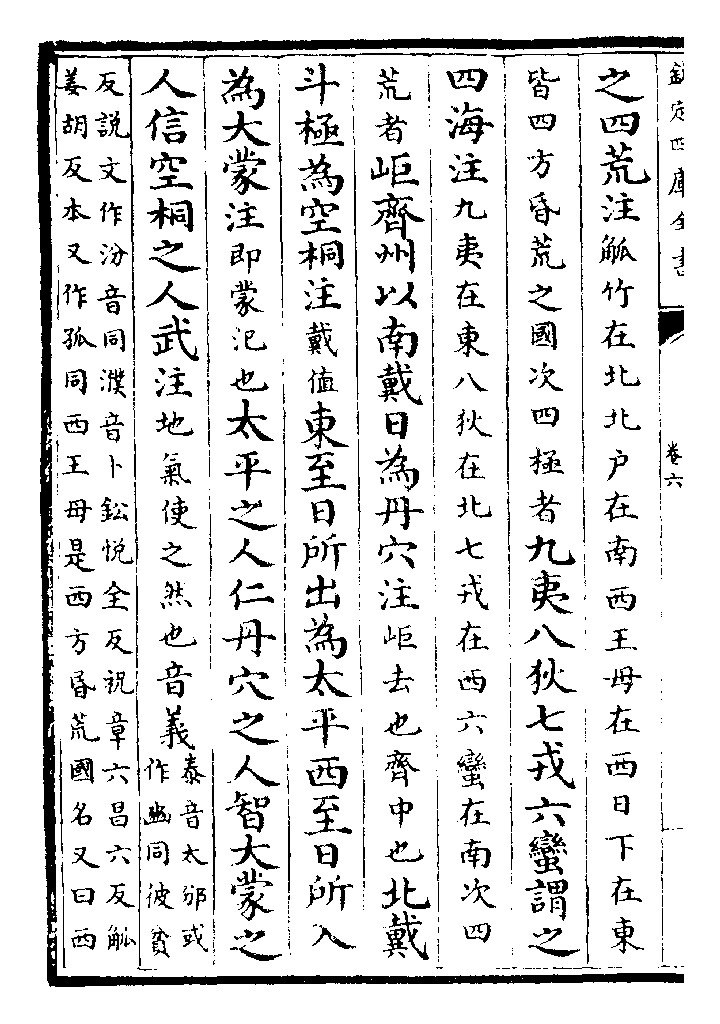 欽定四庫全書
卷六
之四荒注觚竹在北北户在南西王母在西日下在東
皆四方昏荒之國次四極者九夷八狄七戎六蠻謂之
四海注九夷在東八狄在北七戎在西六蠻在南次四
荒者岠齊州以南戴日為丹穴注岠去也齊中也北戴
斗極為空桐注戴值東至日所出為太平西至日所入
為大蒙注即蒙汜也太平之人仁丹穴之人智大蒙之
人信空桐之人武注地氣使之然也音義泰音太邠或
作豳同彼貧
反說文作汾音同濮音卜鈆悦全反祝章六昌六反觚
姜胡反本又作孤同西王母是西方昏荒國名又曰西